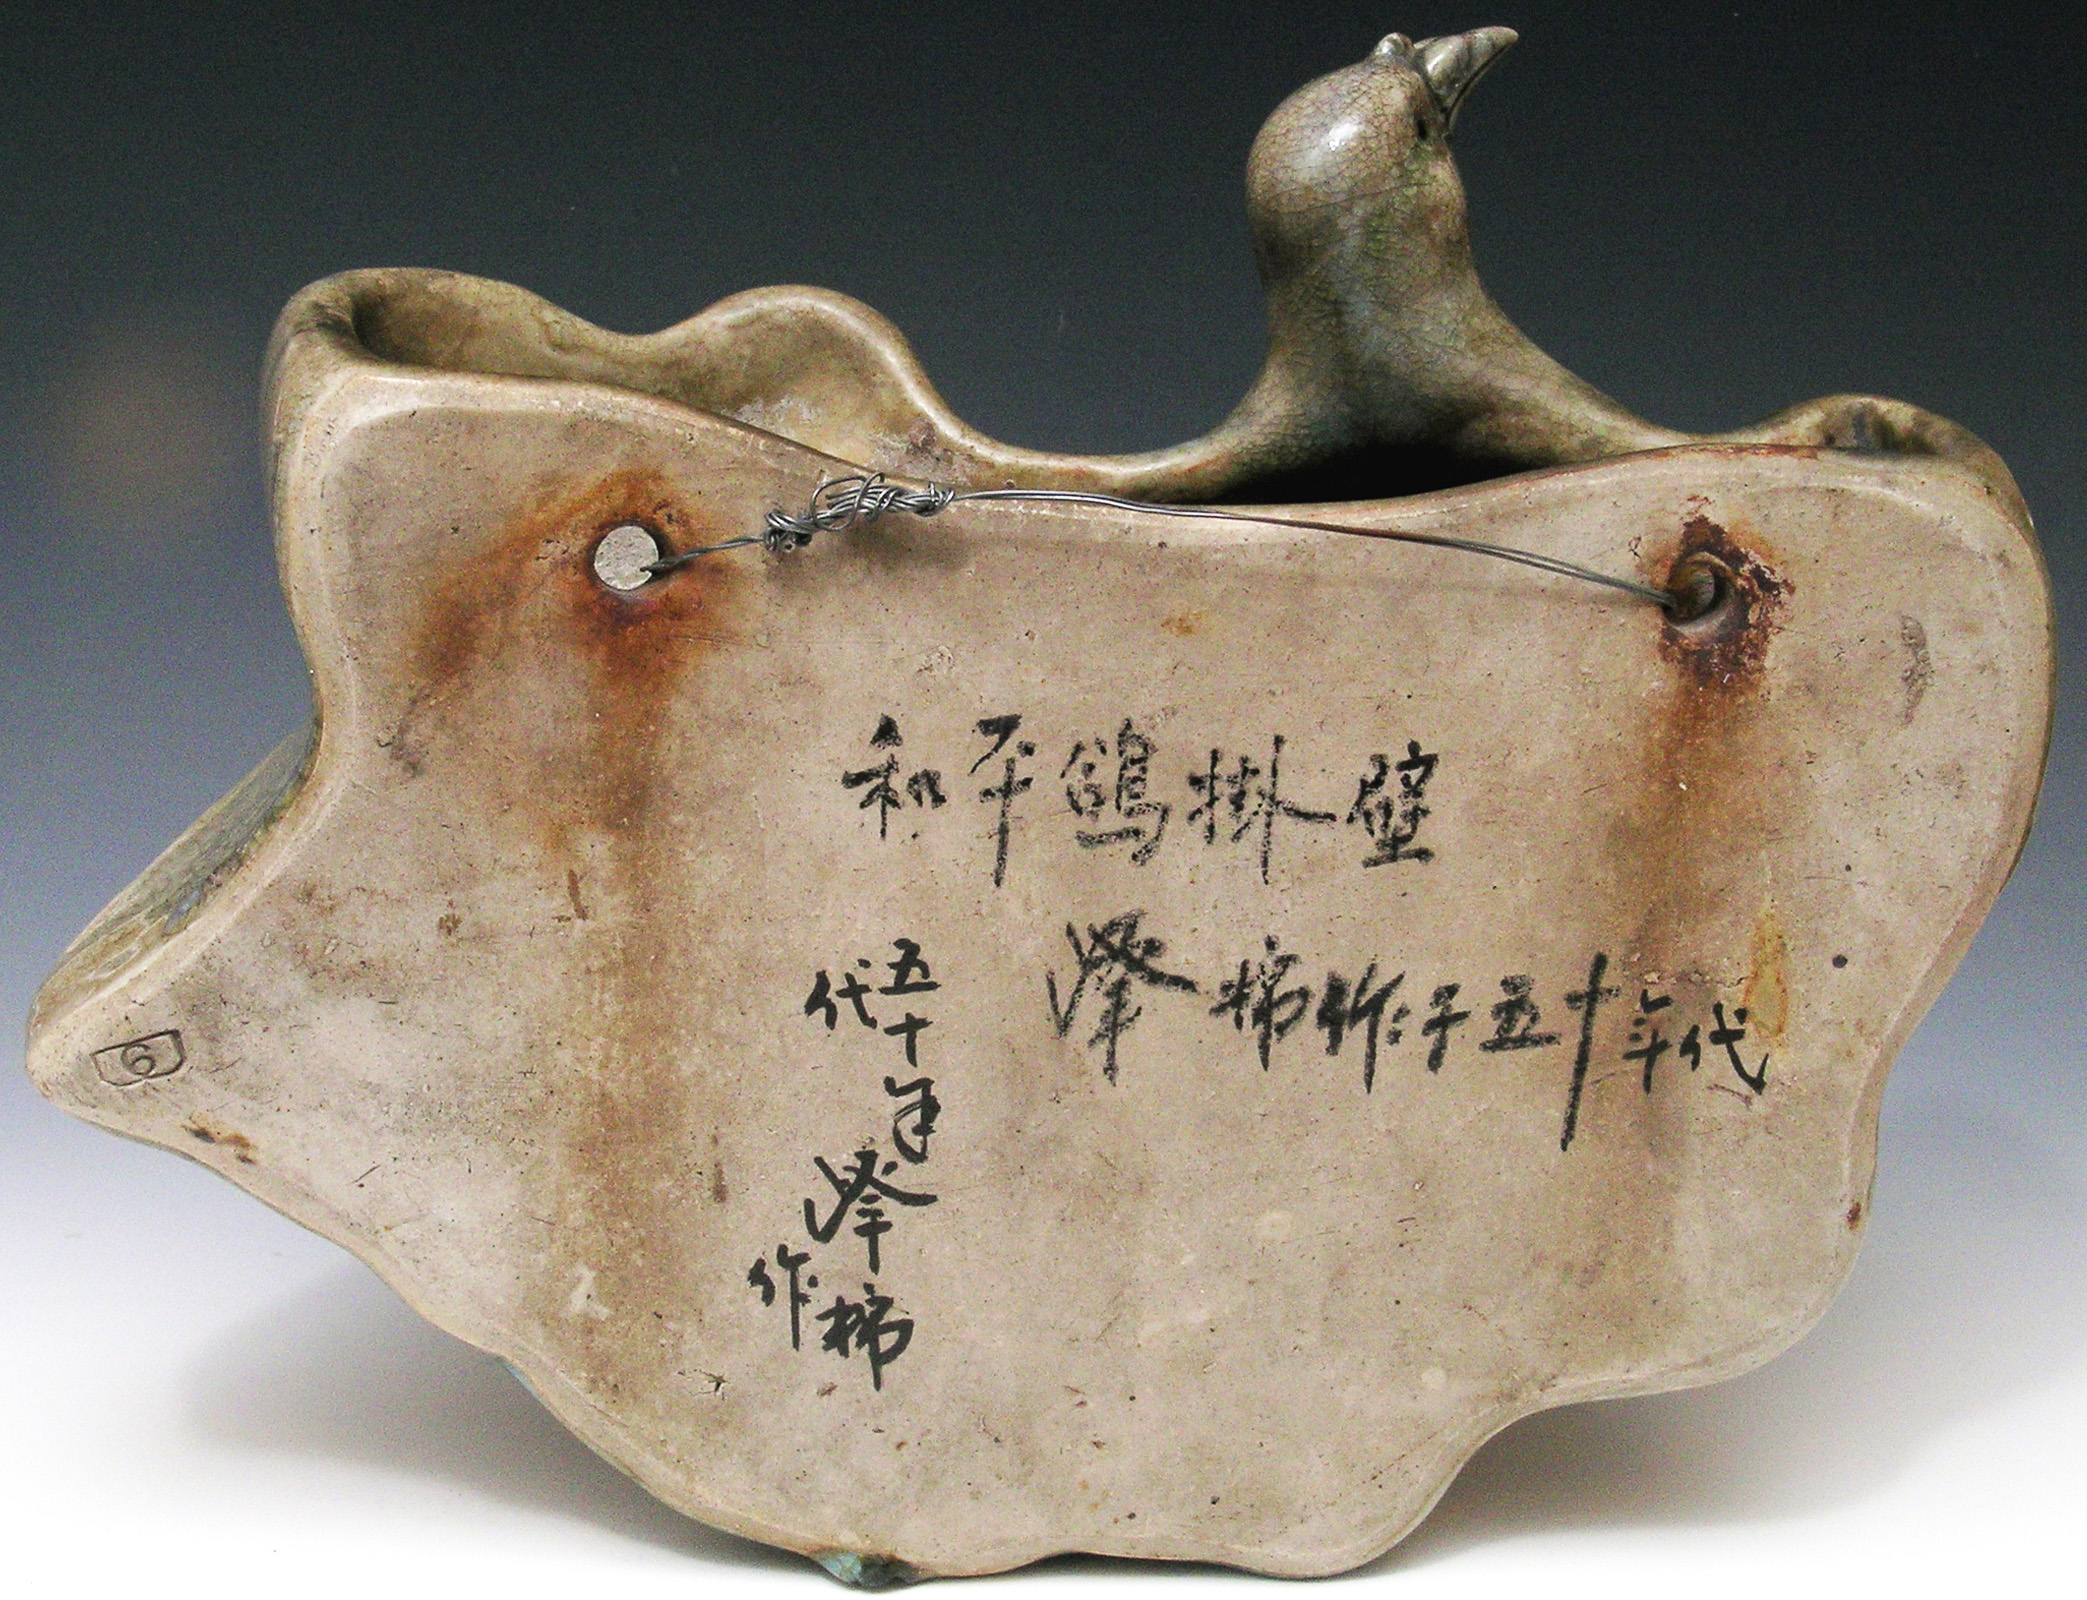 和平鴿掛壁
泽棉作于五十年代
五十年代泽棉作
6